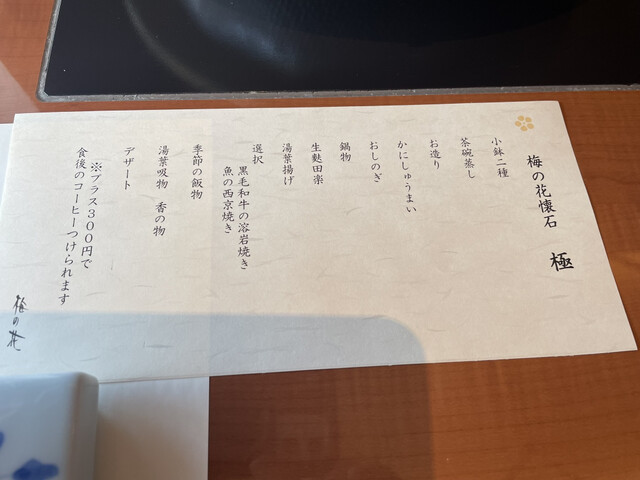 梅の花懐石 極
小鉢二種
茶碗蒸し
お造り
かにしゅうまい
おしのぎ
鍋物
生麩田楽
湯葉揚げ
選択
黒毛和牛の溶岩焼き
魚の西京焼き
季節の飯物
湯葉吸物 香の物
デザート
※プラス300円で
食後のコーヒーつけられます
梅の花